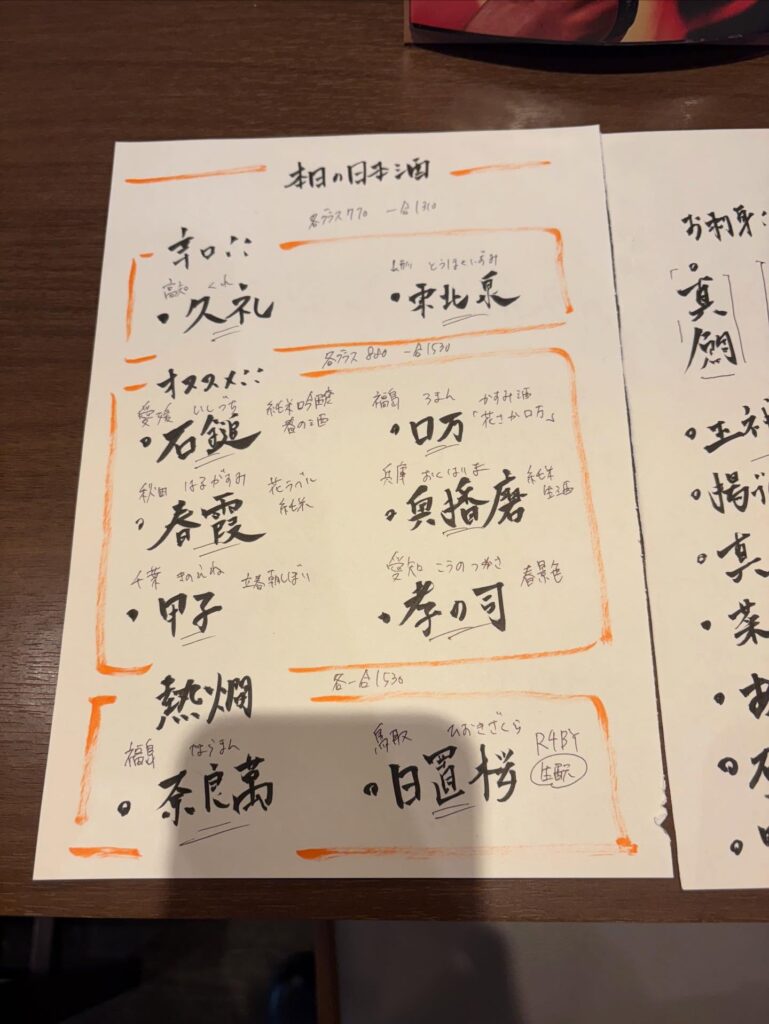 本日の日本酒
各グラス770 一合1310
辛口∴
高知 くれ
・久礼
山形 とうほくいずみ
・東北泉
各グラス880 一合1530
オススメ∴
愛媛 いしづち 純米吟醸 春の酒
・石鎚
福島 ろまん かすみ酒「花さか口万」
・口万
秋田 はるがすみ 花ラベル 純米
・春霞
兵庫 おくはりま 純米 生酒
・奥播磨
千葉 きのえね 立春朝しぼり
・甲子
愛知 こうのつかさ 春景色
・孝の司
各一合1530
熱燗
福島 ならまん
・奈良萬
鳥取 ひおきざくら R4BY 生酛
・日置桜
お刺身:
「真鯛」